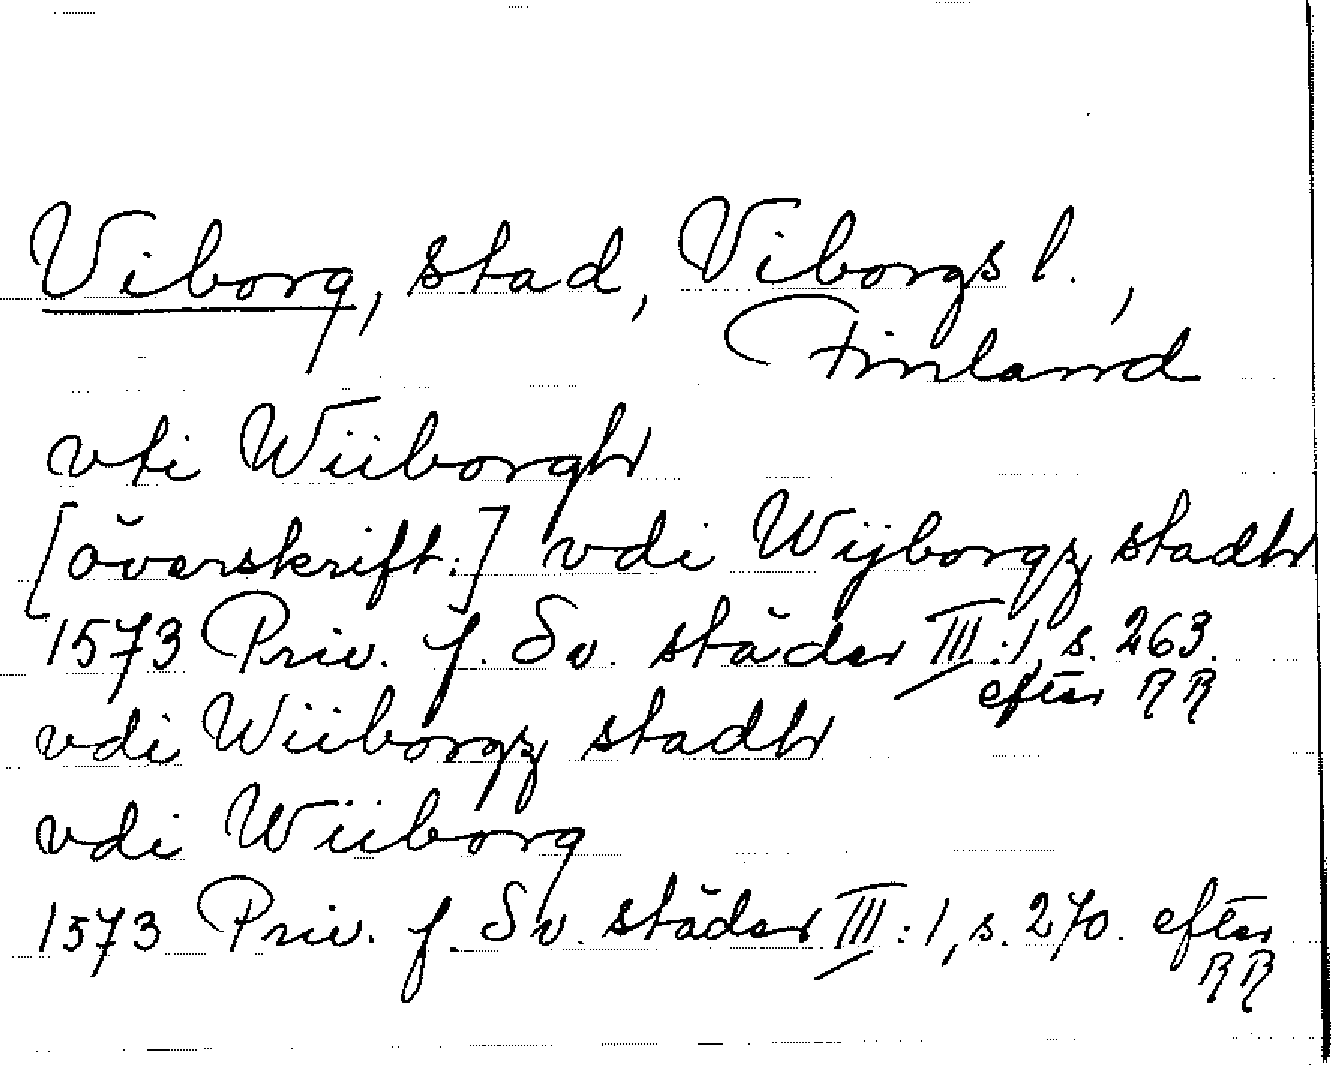 Viborg, stad, Viborgs l.,
Finland
vti Wiiborgh
[överskrift:] vdi Wijborgz stadh
1573 Priv. f. Sv. städer III:1, s. 263.
efter RR
vdi Wiiborgz stadh
vdi Wiiborg
1573 Priv. f. Sv. städer III:1, s. 270. efter
RR